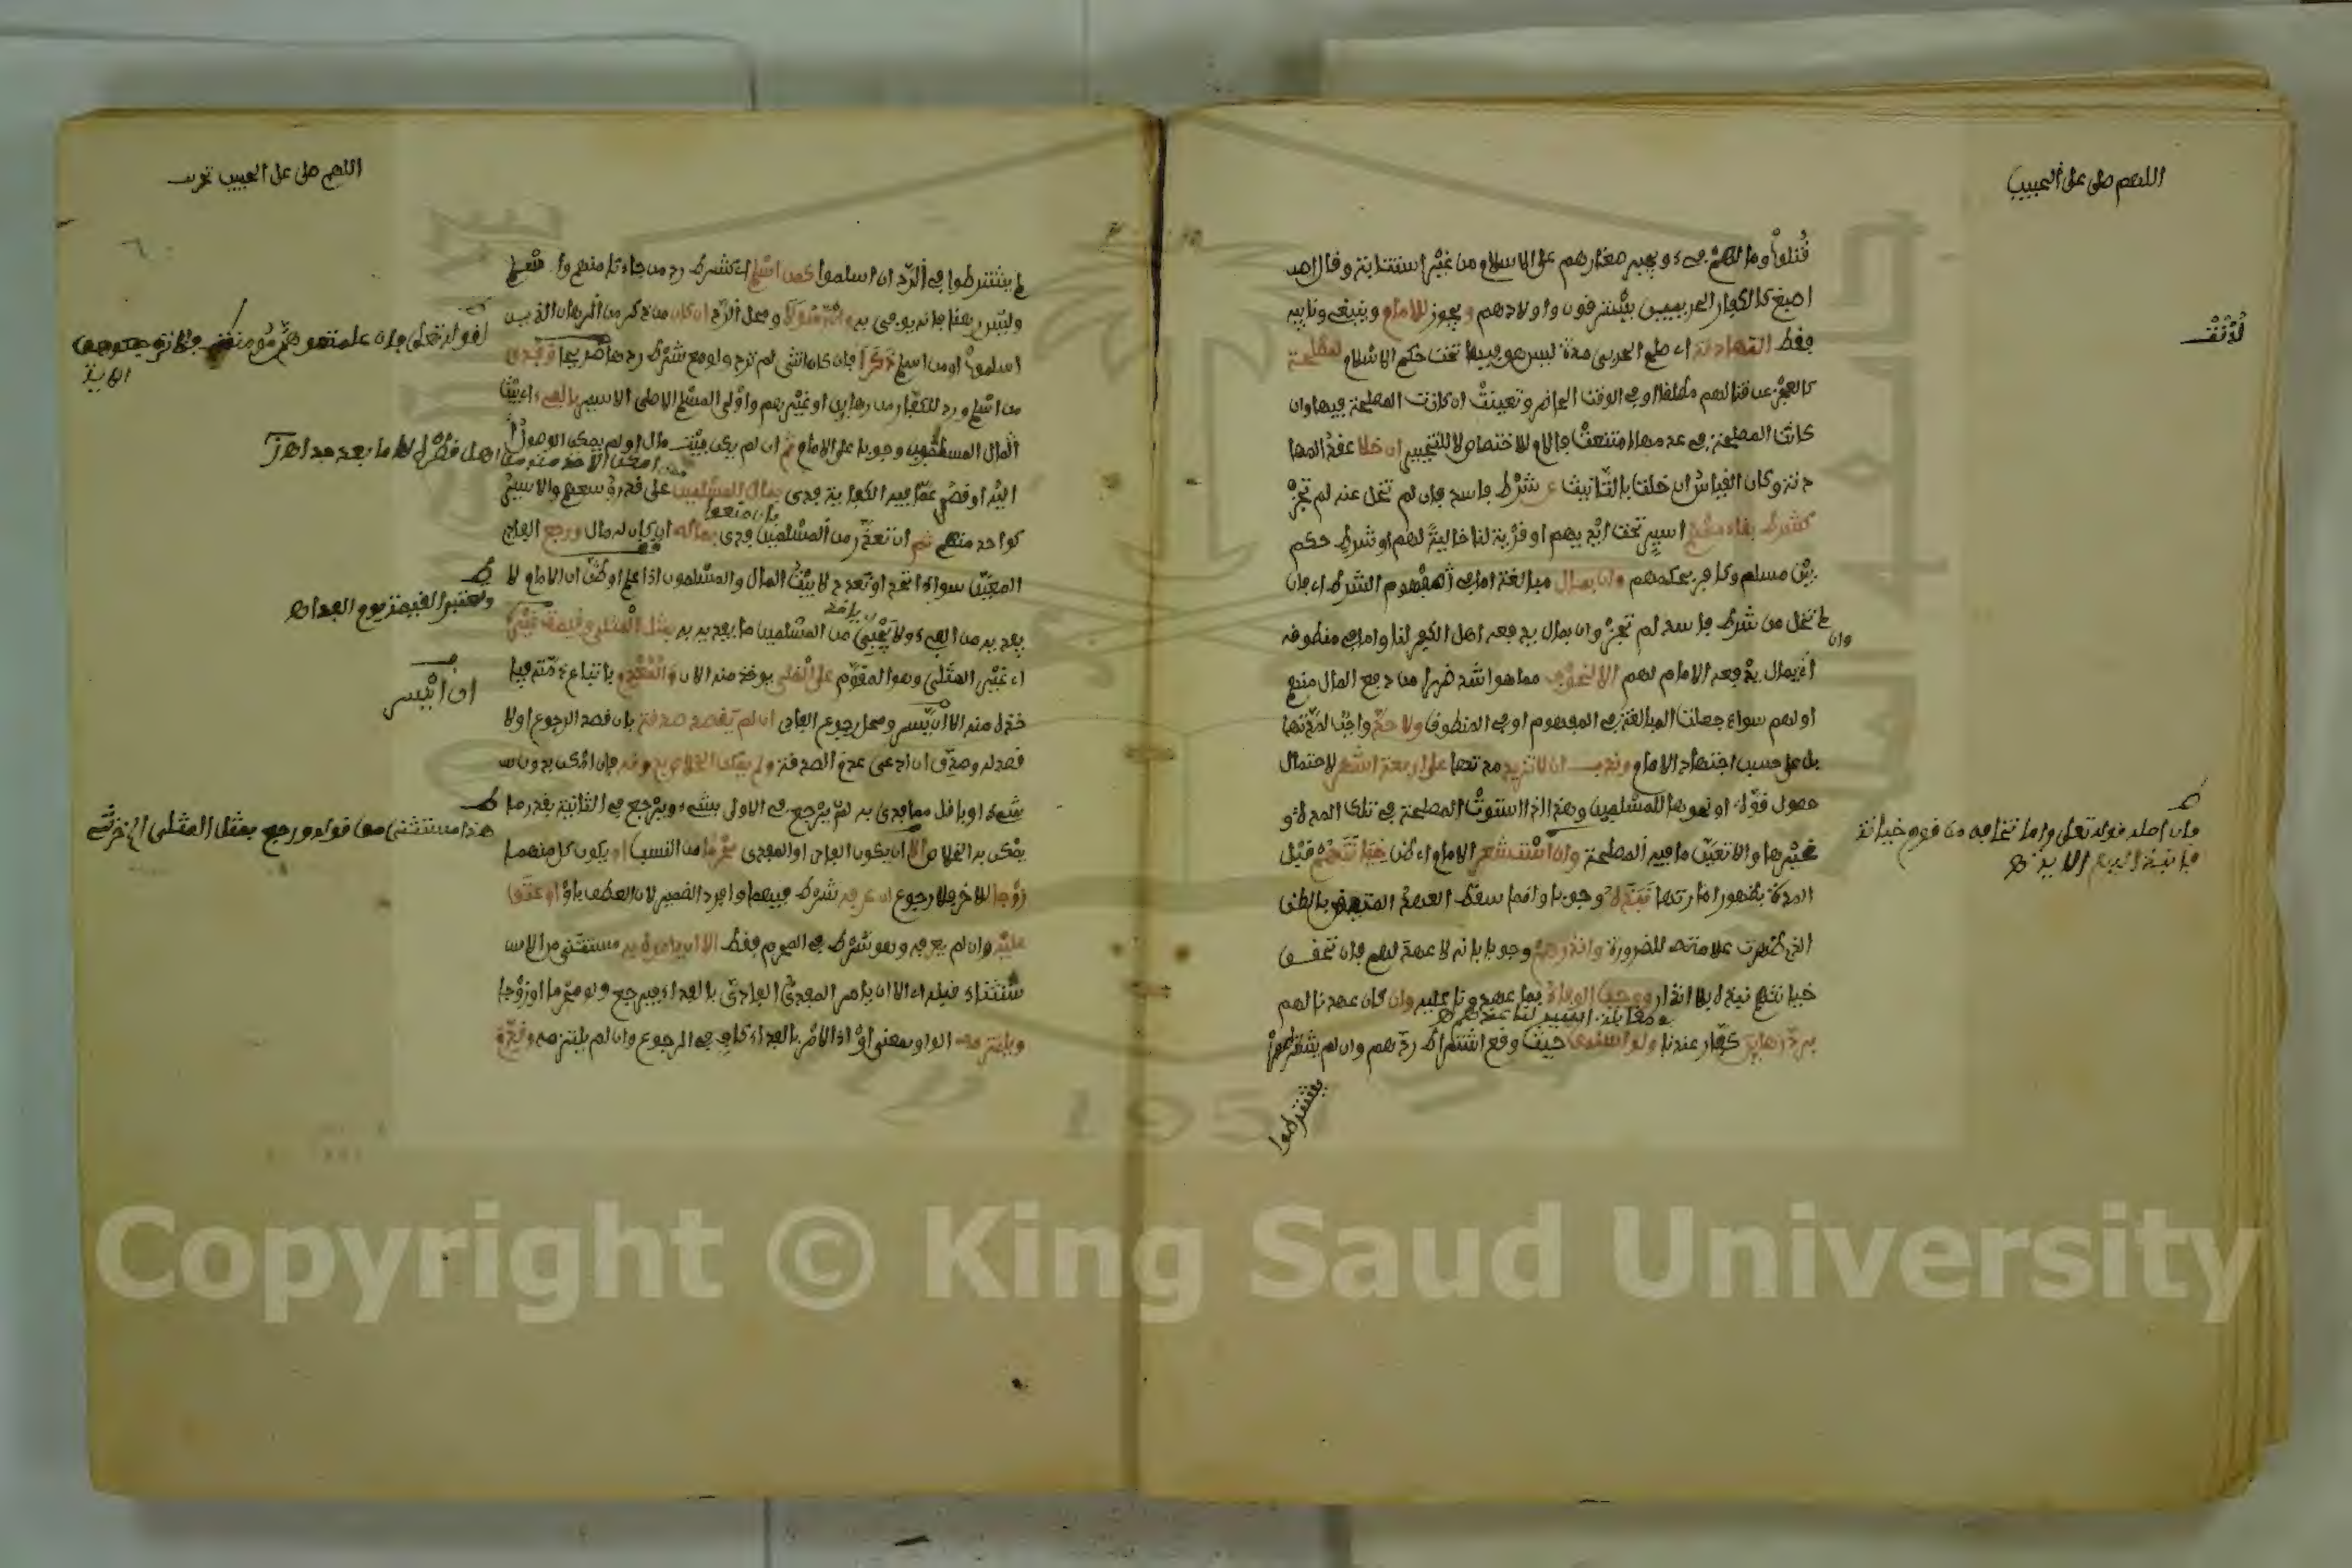 اللهم صل على الحبيب
قتلوا وما لهم فيء ويجبر صغارهم على الاسلام من غير استتابة وقال اصبغ
كالكفار الحربيين يسترقون واولادهم ويجوز للامام وينبغي ونايبه
فقط المهادنة اي صلح الحربي مدة ليس هو فيها تحت حكم الاسلام لمصلحة
كالعجز عن قتالهم مطلقا او في الوقت الحاضر وتعينت ان كانت المصلحة فيها وان
كانت المصلحة في عدمها امتنعت فاللام للاختصاص لا للتخيير ان خلا عقد المها
دنة وكان القياس ان خلت بالتانيث عن شرط فاسد فان لم تخل عنه لم تجز
كشرط بقاء مسلم اسير تحت ايديهم او قرية لنا خالية لهم او شرط حكم
بين مسلم وكافر بحكمهم وان بمال مبالغة اما في المفهوم الشرط اي فان
لم تخل من شرط فاسد لم تجز وان بمال يدفعه اهل الكفر لنا واما في منطوقه
وان
اي بمال يدفعه الامام لهم الا لخوف مما هو اشد ضررا من دفع المال منهم
او لهم سواء جعلت المبالغة في المفهوم او في المنطوق ولا حد واجب لمدتها
بل على حسب اجتهاد الامام وندب ان لا تزيد مدتها على اربعة اشهر لاحتمال
حصول قوة او نحوها للمسلمين وهذا اذا استوت المصلحة في تلك المدة و
غيرها والا تعين ما فيه المصلحة وان استشعر الامام اي ظن خيانتهم قبل
المدة بظهور امارتها نبذه وجوبا وانما سقط العهد المتيقن بالظن
الذي ظهرت علامته للضرورة وانذرهم وجوبا بانه لا عهد لهم فان تحقق
خيانتهم نبذه بلا انذار ووجب الوفاء بما عهدونا عليه وان كان عهدنا لهم
برد رهاين كفار عندنا ولو اسلموا حيث وقع اشتراط ردهم وان لم يشترطوا
يشترطوا
فان اصله قوله تعلى واما تخافن من قوم خيانة
فانبذ اليهم الاية
اللهم صل على الحبيب
لم يشترطوا في الرد ان اسلموا كمن اسلم اي كشرط رد من جاءنا منهم
وليس هذا فانه يوفى به وان رسولا ومحل الرد ان كان من ذكر من الرهاين الذين
اسلموا او من اسلم ذكرا فان كان انثى لم ترد ولو مع شرط ردها صريحا وفدي
من اسلم ورد للكفار من رهاين او غيرهم واولى المسلم الاصلي الاسير بالفيء اي بيت
المال المسلمون وجوبا على الامام ثم ان لم يكن بيت مال او لم يمكن الوصول
اليه او قصر عما فيه الكفاية فدي بمال المسلمين على قدر وسعهم والاسير
كواحد منهم ثم ان تعذر من المسلمين فدي بماله ان كان له مال ورجع الفادي
المعين سواء اتحد او تعدد لا بيت المال والمسلمون اذا علم او ظن ان الامام لا
يفديه من الفيء ولا يجبي من المسلمين ما يفديه به بمثل المثلي وقيمة غيره
اي غير المثلي وهو المقوم على الملي يوخذ منه الان والمعدم باتباع ذمته فيا
خذه منه اذا ايسر ومحل رجوع الفادي ان لم يقصد صدقة بان قصد الرجوع اولا
قصد له وصدق ان ادعى عدم الصدقة ولم يمكن الخلاص بدونه فان امكن بدون
شيء او باقل مما فدي به لم يرجع في الاولى بشيء ويرجع في الثانية بقدر ما
يمكن به الخلاص الا ان يكون الفادي او المفدى محرما من النسب او يكون كل منهما
زوجا للاخر فلا رجوع ان عرفه شرط فيهما وافرد الضمير لان العطف باو او عتق
عليه وان لم يعرفه وهو شرط في المحرم فقط الا ان يامره به مستثنى من الاس
تثناء قبله اي الا ان يامر المفدي الفادي بالفداء فيرجع ولو محرما او زوجا
ويلتزمه الواو بمعنى او اذ الامر بالفداء كاف في الرجوع وان لم يلتزمه وقدم
لقوله تعلى فان علمتموهن مؤمنات فلا ترجعوهن
الاية
وتعتبر القيمة يوم الفداء
ان ايسر
هذا مستثنى من قوله ورجع بمثل المثلي